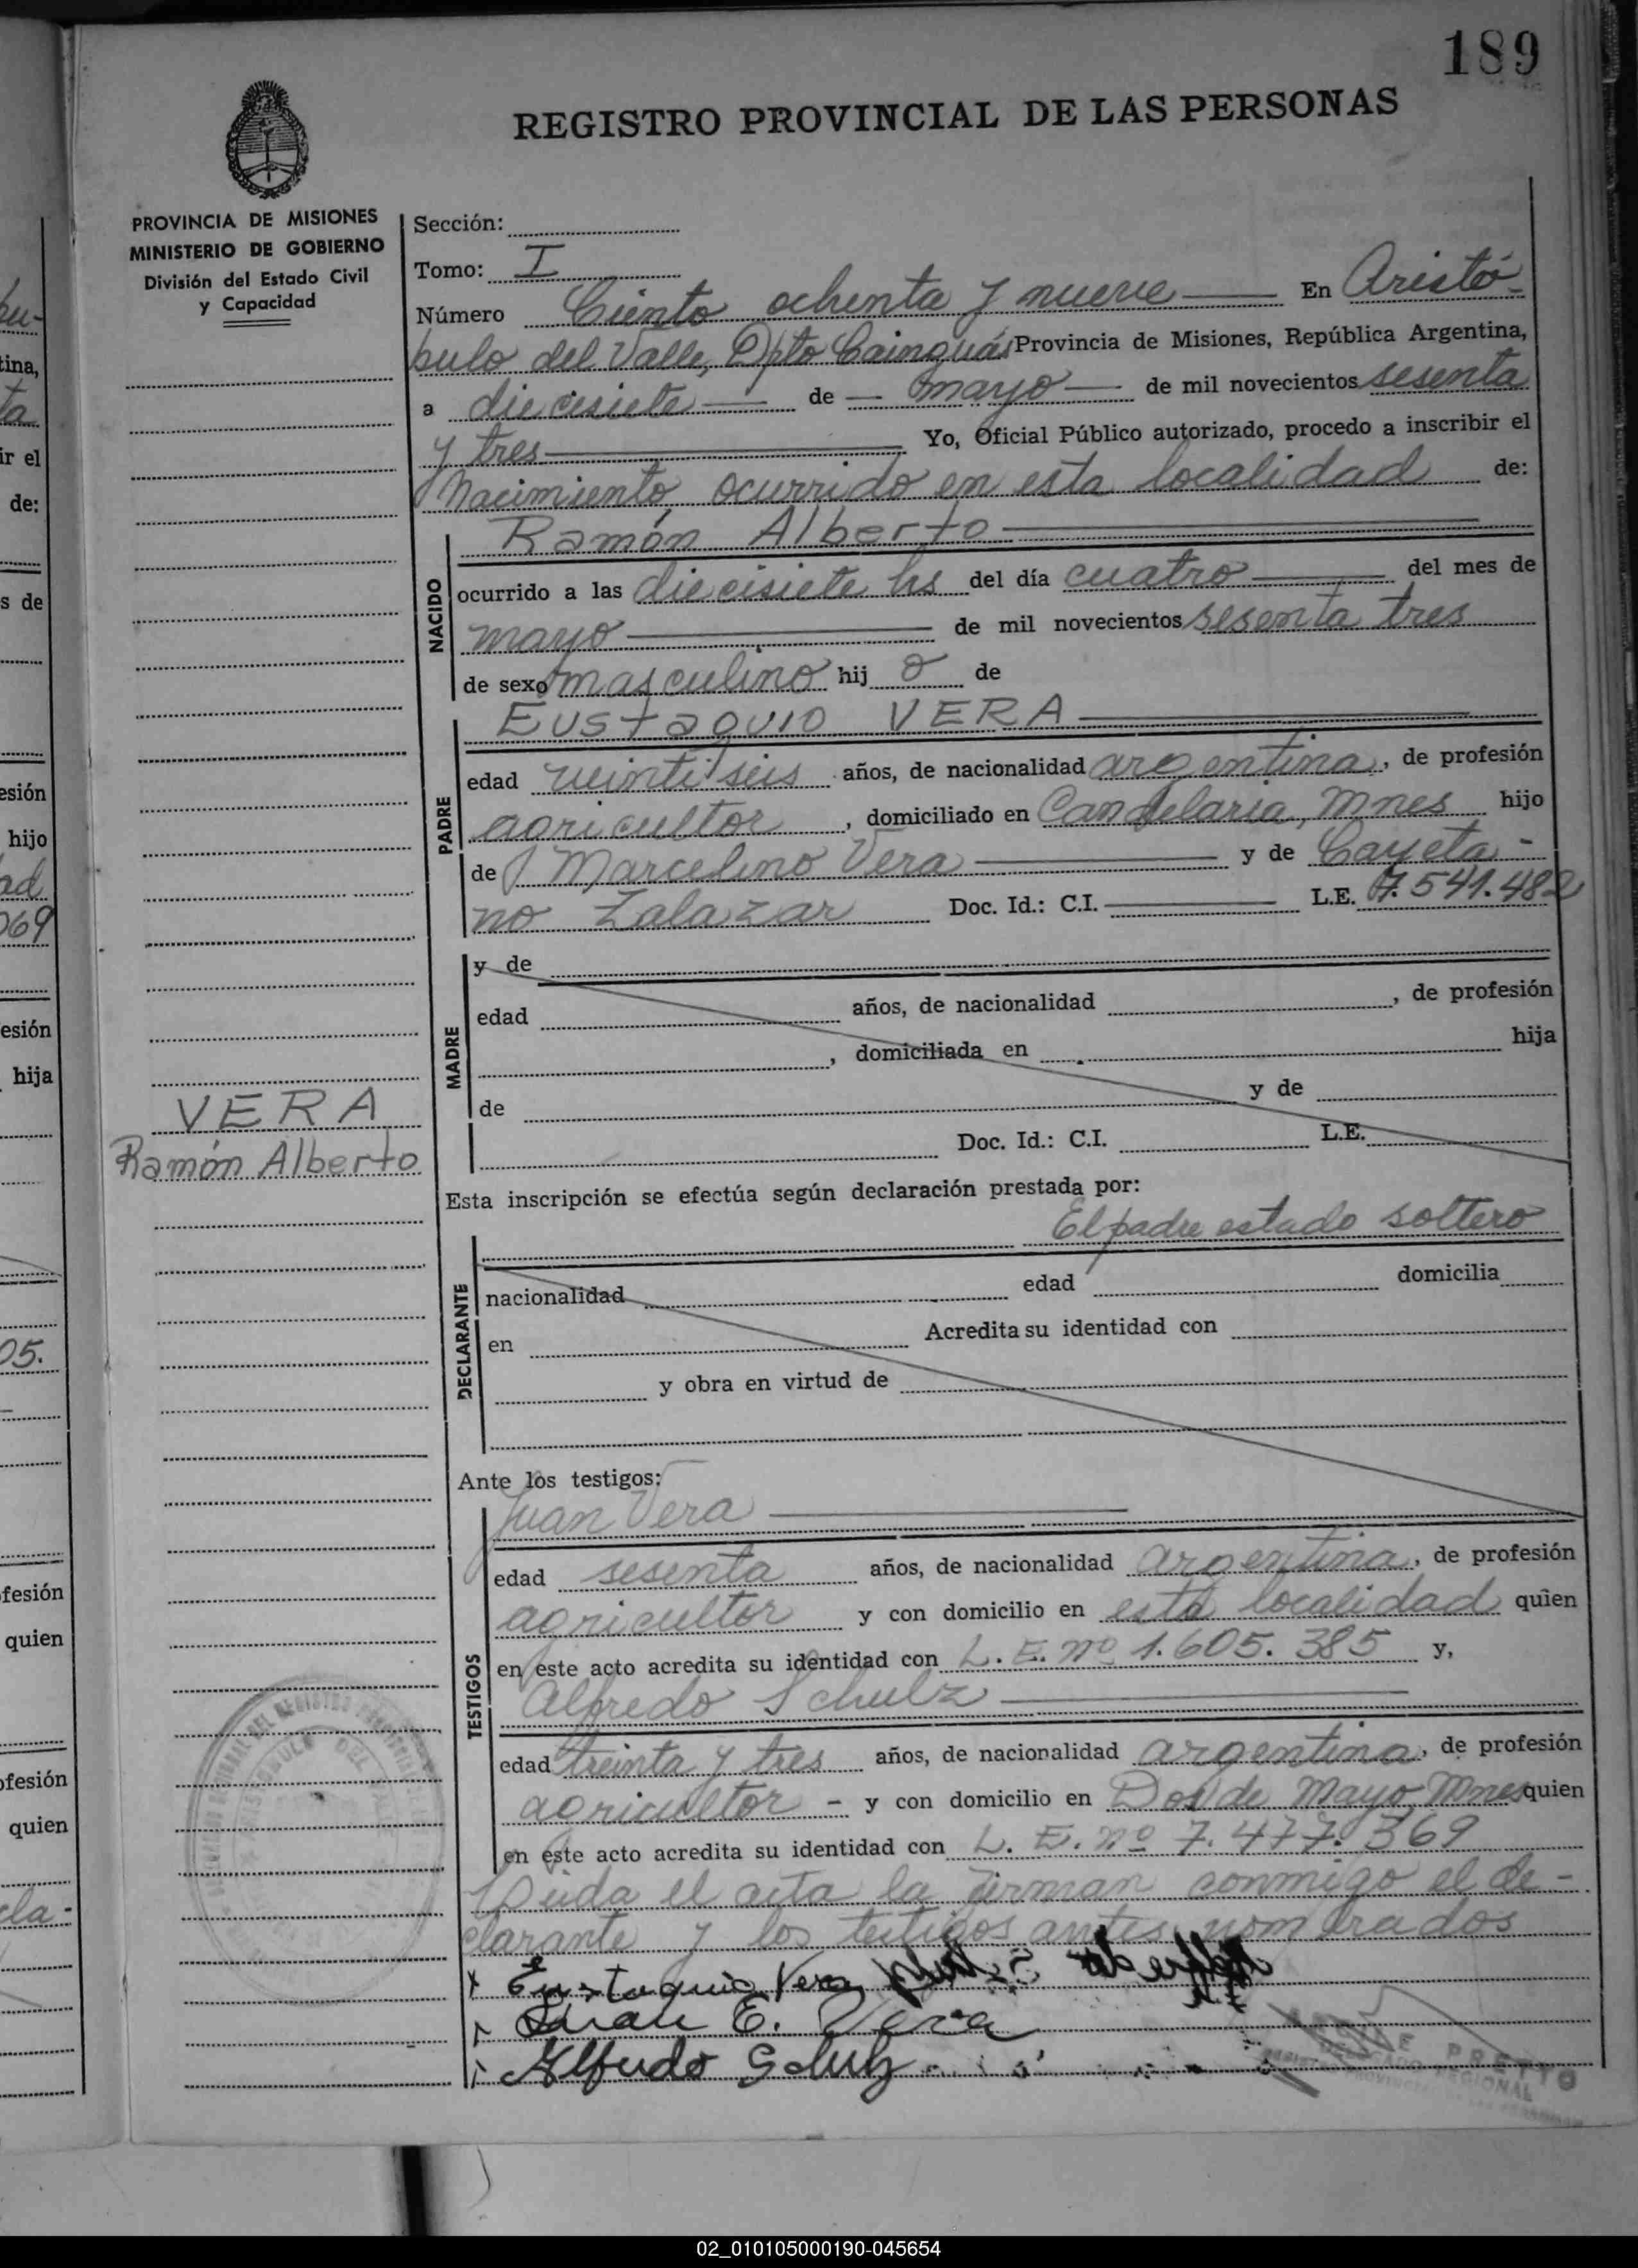 189
REGISTRO PROVINCIAL DE LAS PERSONAS
PROVINCIA DE MISIONES
MINISTERIO DE GOBIERNO
División del Estado Civil
y Capacidad
Sección:
Tomo: I
Número Ciento ochenta y nueve En Aristó-
bulo del Valle, Dpto Cainguás Provincia de Misiones, República Argentina,
a diecisiete de mayo de mil novecientos sesenta
y tres Yo, Oficial Público autorizado, procedo a inscribir el
Nacimiento, ocurrido en esta localidad de:
Ramón Alberto
NACIDO
ocurrido a las diecisiete hs del día cuatro del mes de
mayo de mil novecientos sesenta tres
de sexo masculino hij o de
Eustaquio VERA
PADRE
edad veinti seis años, de nacionalidad argentina, de profesión
agricultor, domiciliado en Candelaria, Mnes hijo
de Marcelino Vera y de Cayeta-
no Zalazar Doc. Id.: C.I. L.E. 7.541.482
MADRE
y de
edad años, de nacionalidad , de profesión
, domiciliada en hija
de y de
Doc. Id.: C.I. L.E.
VERA
Ramón Alberto
Esta inscripción se efectúa según declaración prestada por:
El padre estado soltero
DECLARANTE
nacionalidad edad domicilia
en Acredita su identidad con
y obra en virtud de
Ante los testigos:
Juan Vera
TESTIGOS
edad sesenta años, de nacionalidad argentina, de profesión
agricultor y con domicilio en esta localidad quien
en este acto acredita su identidad con L.E. nº 1.605.385 y,
Alfredo Schulz
edad treinta y tres años, de nacionalidad argentina, de profesión
agricultor - y con domicilio en Dos de Mayo, Mnes quien
en este acto acredita su identidad con L.E. nº 7.477.369
Leida el acta la firman conmigo el de-
clarante y los testigos antes nombrados
Eustaquio Vera
Juan E. Vera
Alfredo Schulz
PRETTO
REGIONAL
02_010105000190-045654